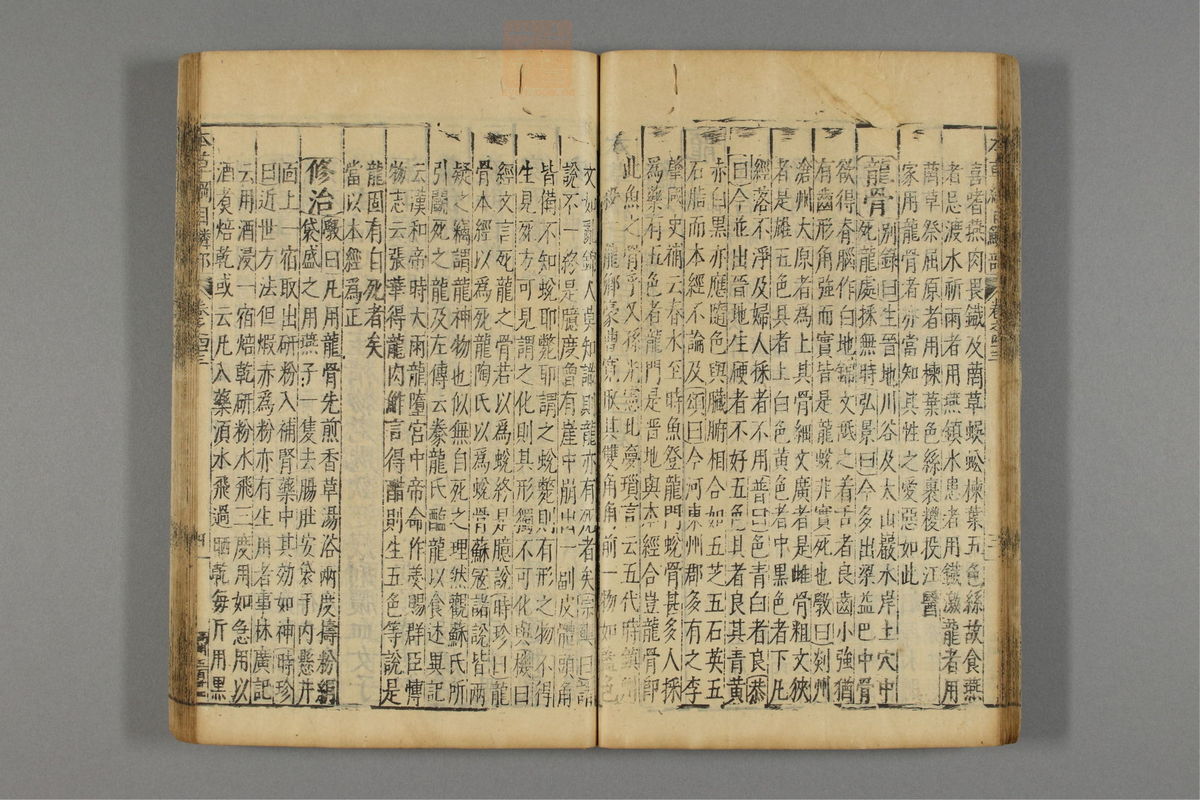 喜嗜燕肉畏鐵及䓘草蜈蚣楝葉五色絲故食燕
者忌渡水祈雨者用燕鎮水患者用鐵激龍者用
䓘草祭屈原者用楝葉色絲裹糉投江醫
家用龍骨者亦當知其性之愛惡如此
龍骨別録曰生晉地川谷及太山巖水岸上穴中
死龍處採無時弘景曰今多出梁益巴中骨
欲得脊腦作白地錦文䑛之着舌者良齒小強猶
有齒形角強而實皆是龍蛻非實死也斆曰剡州
滄州太原者為上其骨細文廣者是雌骨粗文狹
者是雄五色具者上白色黃色者中黑色者下凡
經落不淨及婦人採者不用普曰色青白者良恭
曰今並出晉地生硬者不好五色具者良其青黃
赤白黑亦應隨色與臟腑相合如五芝五石英五
石脂而本經不論及頌曰今河東州郡多有之李
肇國史補云春水至時魚登龍門蛻骨甚多人採
為藥有五色者龍門是晋地與本經合豈龍骨即
此魚之骨乎又孫光憲北夢瑣言云五代時鎮州
殺一龍鄉豪曹寛取其雙角角前一物如藍色
文如亂錦人莫知識則龍亦有死者矣宗奭曰諸
說不一終是臆度曾有崖中崩出一副皮體頭角
皆備不知蛻耶斃耶謂之蛻斃則有形之物不得
生見死方可見謂之化則其形獨不可化與機曰
經文言死龍之骨若以為蛻終是臆說時珍曰龍
骨本經以為死龍陶氏以為蛻骨蘇冦諸說皆兩
疑之竊謂龍神物也似無自死之理然觀蘇氏所
引鬭死之龍及左傳云豢龍氏醢龍以食述異記
云漢和帝時大雨龍墮宮中帝命作羮賜群臣愽
物志云張華得龍肉鮓言得醋則生五色等說是
龍固有自死者矣
當以本經為正
修治斆曰凡用龍骨先煎香草湯浴兩度搗粉絹
袋盛之用燕子一隻去腸肚安袋于内懸井
面上一宿取出研粉入補腎藥中其効如神時珍
曰近世方法但煅赤為粉亦有生用者事林廣記
云用酒浸一宿焙乾研粉水飛三度用如急用以
酒煑焙乾或云凡入藥湏水飛過晒乾每斤用黑